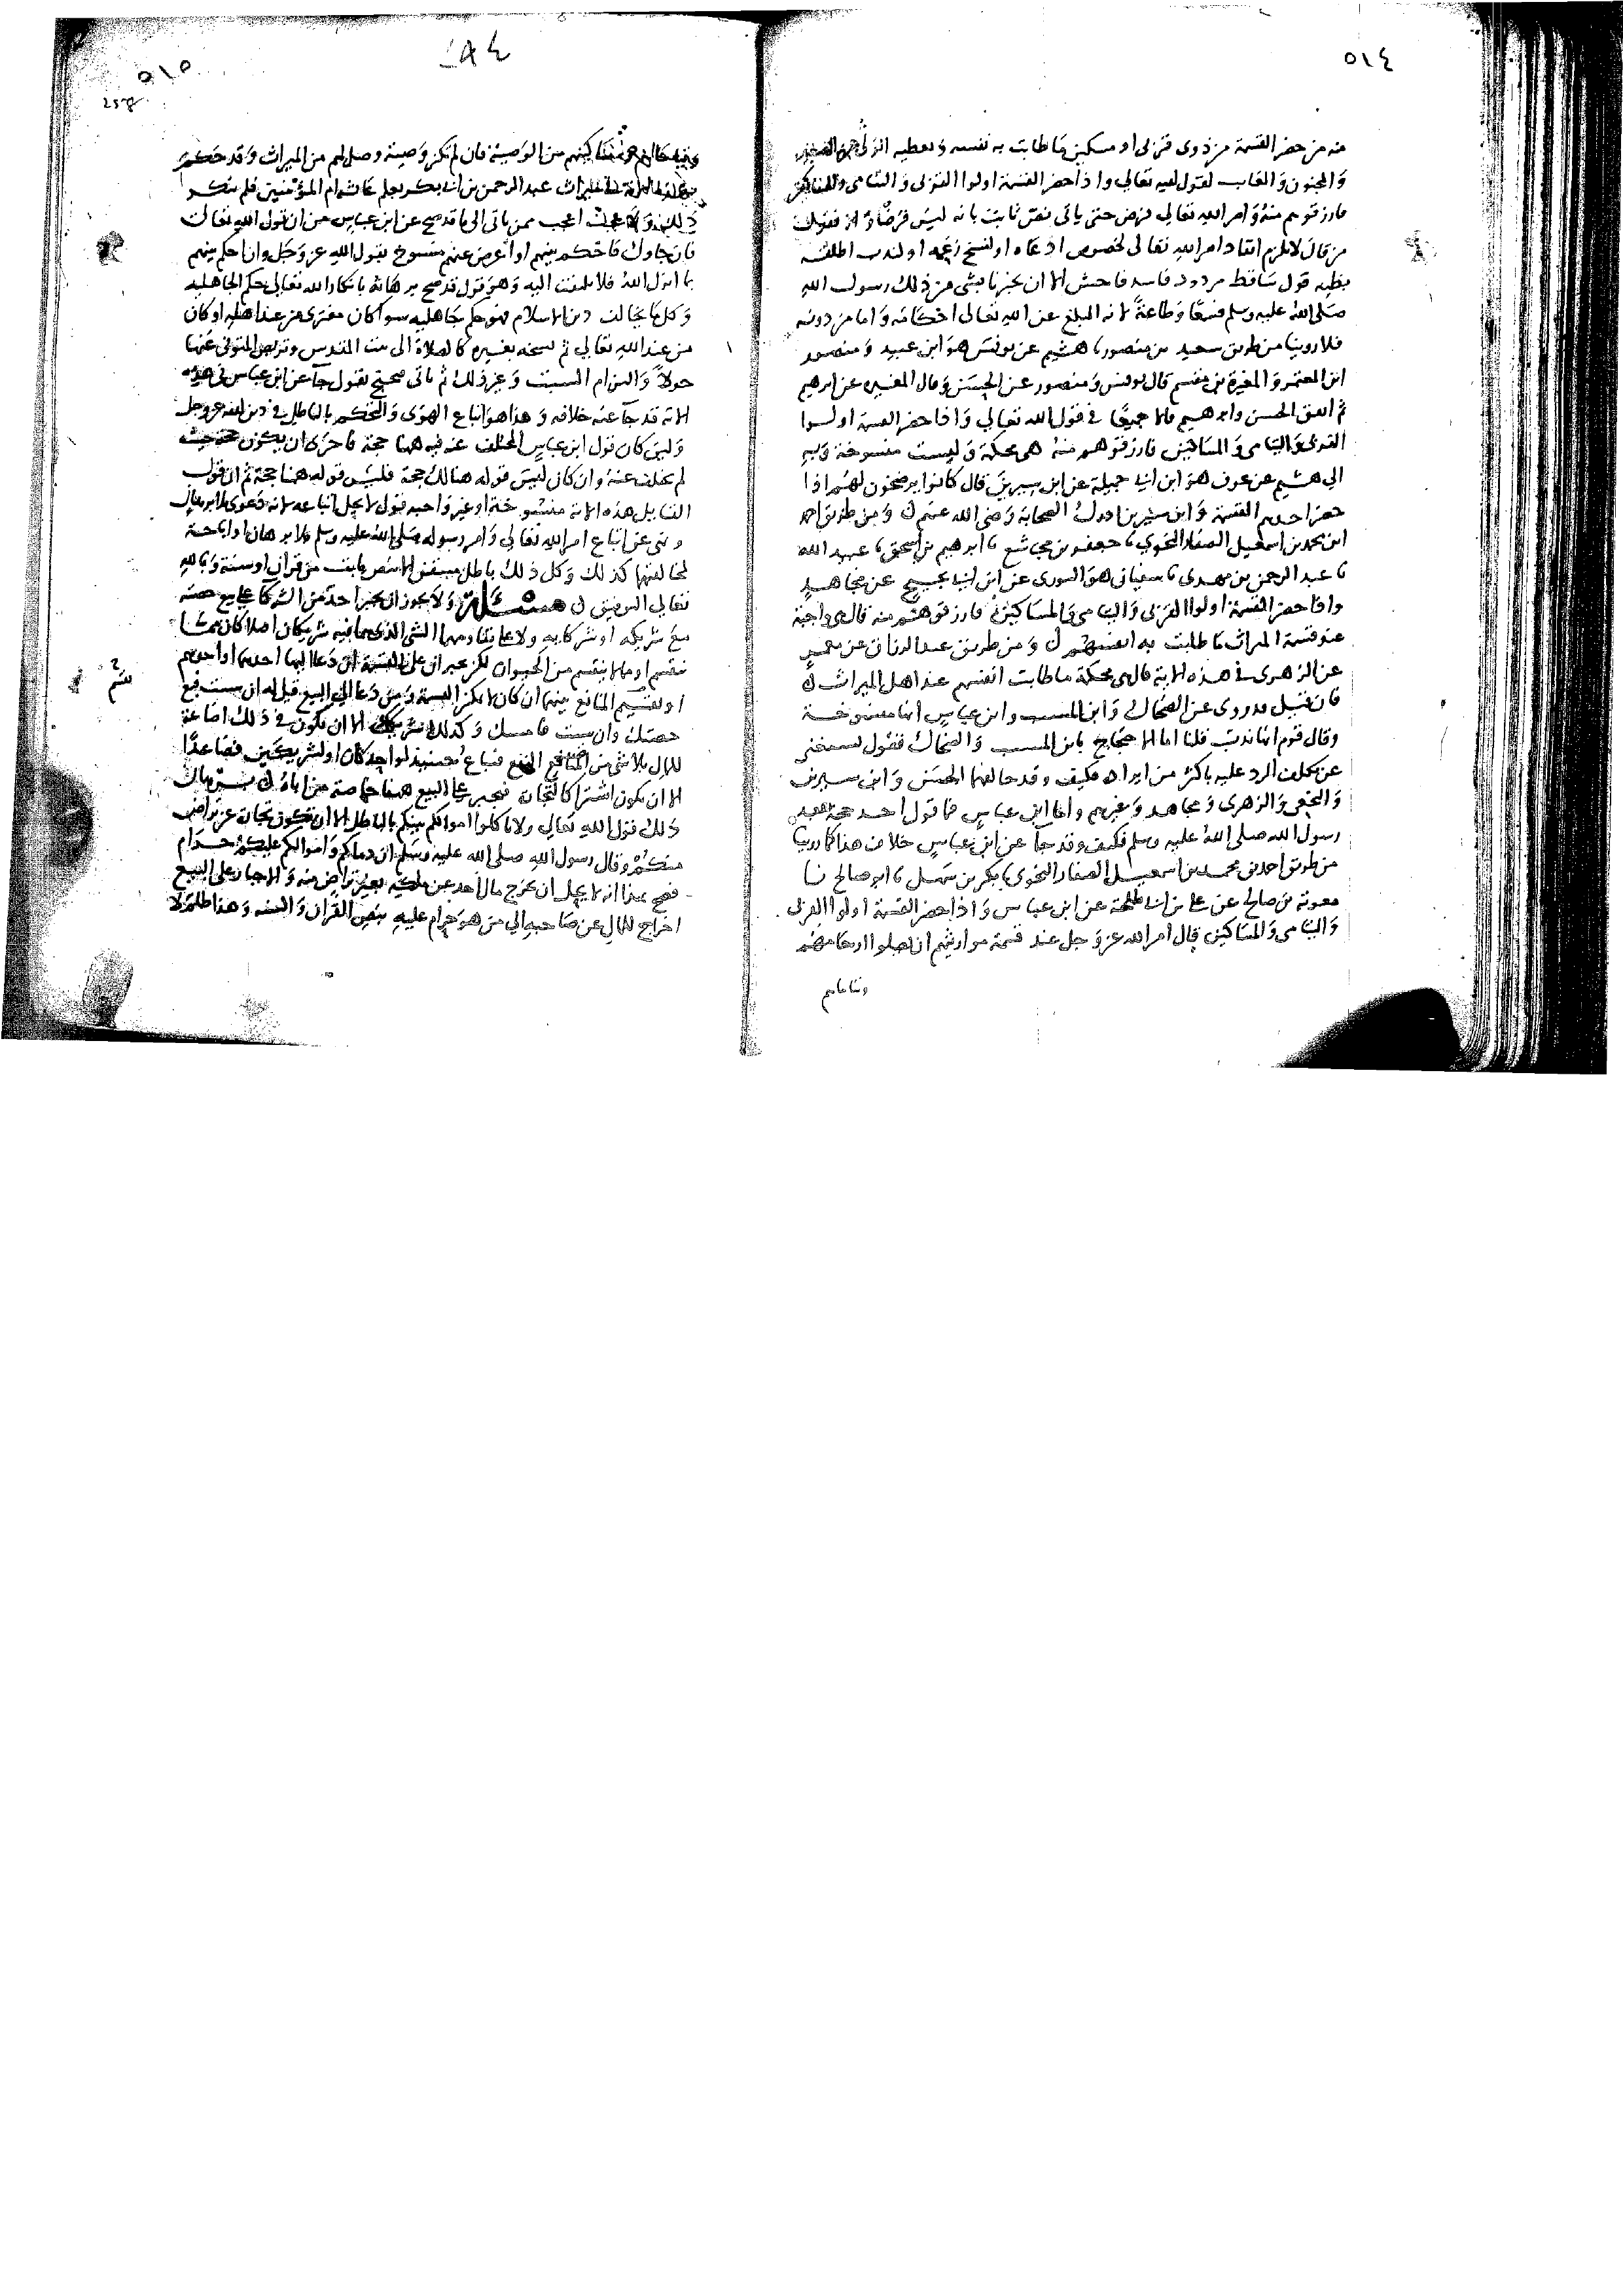 ٥١٤
منه من حضر القسمة من ذوي قربى او مسكين ما طابت به نفسه ويعطيه الولي عن الصغير
والمجنون والغايب لقول الله تعالى واذا حضر القسمة اولوا القربى واليتامى والمساكين
فارزقوهم منه وامر الله تعالى فرض حتى ياتي نص ثابت بانه ليس فرضا
من قال لا يلزم انفاد امر الله تعالى لخصوص ادعاه او لنسخ زعمه او لندب اطلقه
بظنه قول ساقط مردود فاسد فاحش الا ان يخبرنا بشي من ذلك رسول الله
صلى الله عليه وسلم فسمعا وطاعة لانه المبلغ عن الله تعالى احكامه واما من دونه
فلا روينا من طريق سعيد بن منصور نا هشيم عن يونس هو ابن عبيد ومنصور
ابن المعتمر والمغيرة بن مقسم قال يونس ومنصور عن الحسن وقال المغيرة عن ابرهيم
ثم اتفق الحسن وابرهيم قالا جميعا في قول الله تعالى واذا حضر القسمة اولوا
القربى واليتامى والمساكين فارزقوهم منه هي محكمة وليست منسوخة وبه
الى هشيم عن عوف هو ابن ابي جميلة عن ابن سيرين قال كانوا يرضخون لهم اذا
حضر احدهم القسمة وابن سيرين ادرك الصحابة رضي الله عنهم ومن طريق احمد
ابن محمد بن اسمعيل الصفار النحوي نا جعفر بن مجاشع نا ابرهيم بن اسحق نا عبيد الله
نا عبد الرحمن بن مهدي نا سفيان هو الثوري عن ابن ابي نجيح عن مجاهد
واذا حضر القسمة اولوا القربى واليتامى والمساكين فارزقوهم منه قال هي واجبة
عند قسمة الميراث ما طابت به انفسهم ومن طريق عبد الرزاق عن معمر
عن الزهري في هذه الاية قال هي محكمة ما طابت انفسهم عند اهل الميراث
فان قيل قد روي عن الضحاك وابن المسيب وابن عباس انها منسوخة
وقال قوم انها ندب قلنا اما الاحتجاج بابن المسيب والضحاك فقول يستغنى
عن تكلف الرد عليه باكثر من ايراده فكيف وقد خالفهما الحسن وابن سيرين
والنخعي والزهري ومجاهد وغيرهم واما ابن عباس فما قول احد حجة بعد
رسول الله صلى الله عليه وسلم فكيف وقد جا عن ابن عباس خلاف هذا كما روينا
من طريق احمد بن محمد بن اسمعيل الصفار النحوي نا بكر بن سهل نا ابو صالح نا
معوية بن صالح عن علي بن ابي طلحة عن ابن عباس واذا حضر القسمة اولوا القربى
واليتامى والمساكين قال امر الله عز وجل عند قسمة مواريثهم ان يصلوا ارحامهم
ويتاماهم
٥١٥
ويتاماهم ومساكينهم من الوصية فان لم تكن وصية وصل لهم من الميراث وقد حكم
عبد الرحمن بن ابي بكر بعلم عائشة ام المؤمنين فلم تنكر
ذلك ولا عجب اعجب ممن ياتي الى ما قد صح عن ابن عباس من ان قول الله تعالى
فان جاوك فاحكم بينهم او اعرض عنهم منسوخ بقول الله عز وجل وان احكم بينهم
بما انزل الله فلا يلتفت اليه وهو قول قد صح برهانه بانكار الله تعالى حكم الجاهلية
وكل ما يخالف دين الاسلام فهو حكم جاهلية سوا كان مفترى من عند اهله او كان
من عند الله تعالى ثم نسخه بغيره كالصلاة الى بيت المقدس وتربص المتوفى عنها
حولا والتزام السبت وغير ذلك ثم ياتي محتج بقول جا عن ابن عباس في هذه
الاية قد جا عنه خلافه وهذا هو اتباع الهوى والتحكم بالباطل في دين الله عز وجل
ولين كان قول ابن عباس المختلف عنه فيه ههنا حجة فاحرى ان يكون حجة حيث
لم يختلف عنه وان كان ليس قوله هنالك حجة فليس قوله ههنا حجة ثم ان قول
القايل هذه الاية منسوخة او غير واجبة قول لا يحل اتباعه لانه دعوى بلا برهان
ونهي عن اتباع امر الله تعالى وامر رسوله صلى الله عليه وسلم بلا برهان او اباحة
لمخالفتهما كذلك وكل ذلك باطل متيقن الا بنص ثابت من قران او سنة وبالله
تعالى التوفيق مسئلة ولا يجوز ان يجبر احد من الشركا على بيع حصته
مع شريكه او شركايه ولا على تقاومهما الشي الذي هما فيه شريكان اصلا كان مما
ينقسم او مما لا ينقسم من الحيوان لكن يجبران على القسمة ان دعا اليها احدهما او احدهم
او تقسيم المنافع بينهما ان كان لا يمكن القسمة ومن دعا الى البيع قيل له ان شيت فبع
حصتك وان شيت فامسك وكذلك شريكك الا ان يكون في ذلك اضاعة
للمال بلا شي من النفع فيباع حينيذ لواحد كان او لشريكين فصاعدا
الا ان يكون اشتركا لتجارة فيجبر على البيع ههنا خاصة من اباه برهان
ذلك قول الله تعالى ولا تاكلوا اموالكم بينكم بالباطل الا ان تكون تجارة عن تراض
منكم وقال رسول الله صلى الله عليه وسلم ان دماكم واموالكم عليكم حرام
فصح بهذا انه لا يحل ان يخرج مال احد عن ملكه بغير تراض منه والاجبار على البيع
اخراج للمال عن صاحبه الى من هو حرام عليه بنص القران والسنه وهذا ظلم لا